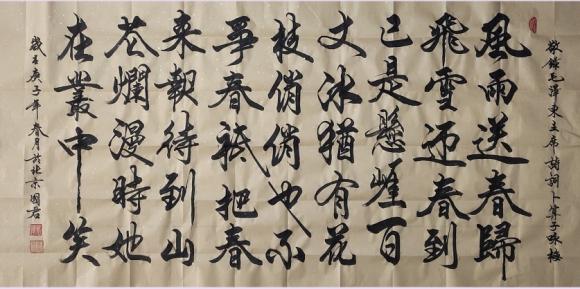 敬錄毛澤東主席詩詞卜算子咏梅
風雨送春歸
飛雪迎春到
已是懸崖百
丈冰猶有花
枝俏俏也不
爭春祗把春
来報待到山
花爛漫時她
在叢中笑
歲在庚子年春月於北京國君